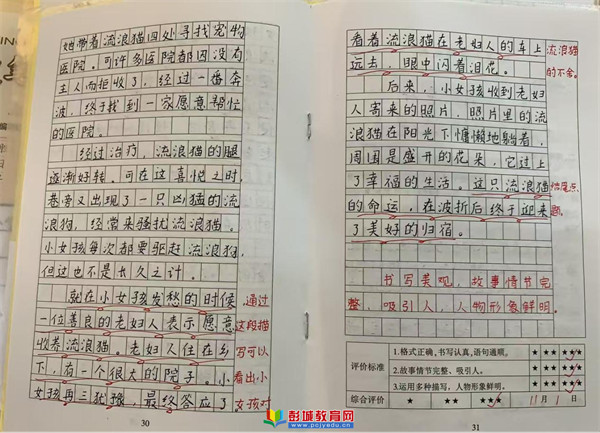 她带着流浪猫四处寻找宠物
医院。可许多医院都因没有
主人而拒收了，经过一番奔
波，终于找到一家愿意帮忙
的医院。
经过治疗，流浪猫的腿
逐渐好转，可在这喜悦之时，
巷旁又出现了一只凶猛的流
浪狗，经常来骚扰流浪猫。
小女孩每次都要驱赶流浪狗，
但这也不是长久之计。
就在小女孩发愁的时候，
一位善良的老妇人表示愿意
收养流浪猫。老妇人住在乡
下，有一个很大的院子。小
女孩再三犹豫，最终答应了
通过
这段描
写可以
看出小
女孩对
30
看着流浪猫在老妇人的车上
远去，眼中闪着泪花。
后来，小女孩收到老妇
人寄来的照片，照片里的流
浪猫在阳光下慵懒地躺着，
周围是盛开的花朵，它过上
了幸福的生活。这只流浪猫
的命运，在波折后终于迎来
了美好的归宿。
流浪猫
的不舍。
结尾点
题。
书写美观，故事情节完
整，吸引人，人物形象鲜明。
评价标准
1.格式正确，书写认真，语句通顺。 ★ ★★ ★★★
2.故事情节完整、吸引人。 ★ ★★ ★★★
3.运用多种描写，人物形象鲜明。 ★ ★★ ★★★
综合评价 ★ ★★ ★★★ 11月1日
31
彭城教育网
www.pcjyedu.cn